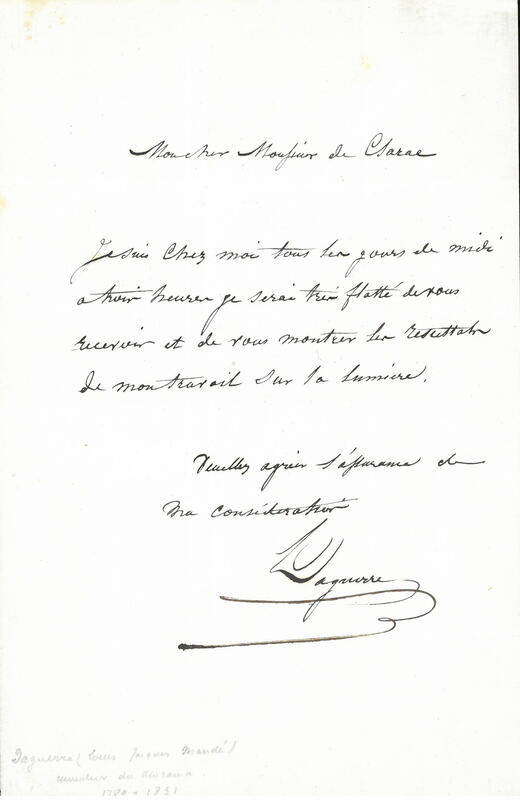 Mon cher Monsieur de Clarac
Je suis Chez moi tous les jours de midi
a trois heures je serai très flatté de vous
recevoir et de vous montrer les resultats
de mon travail sur la lumière.
Veuillez agréer l'assurance de
ma considération
Daguerre
Daguerre (Louis Jacques Mandé)
inventeur du diorama
1789 + 1851